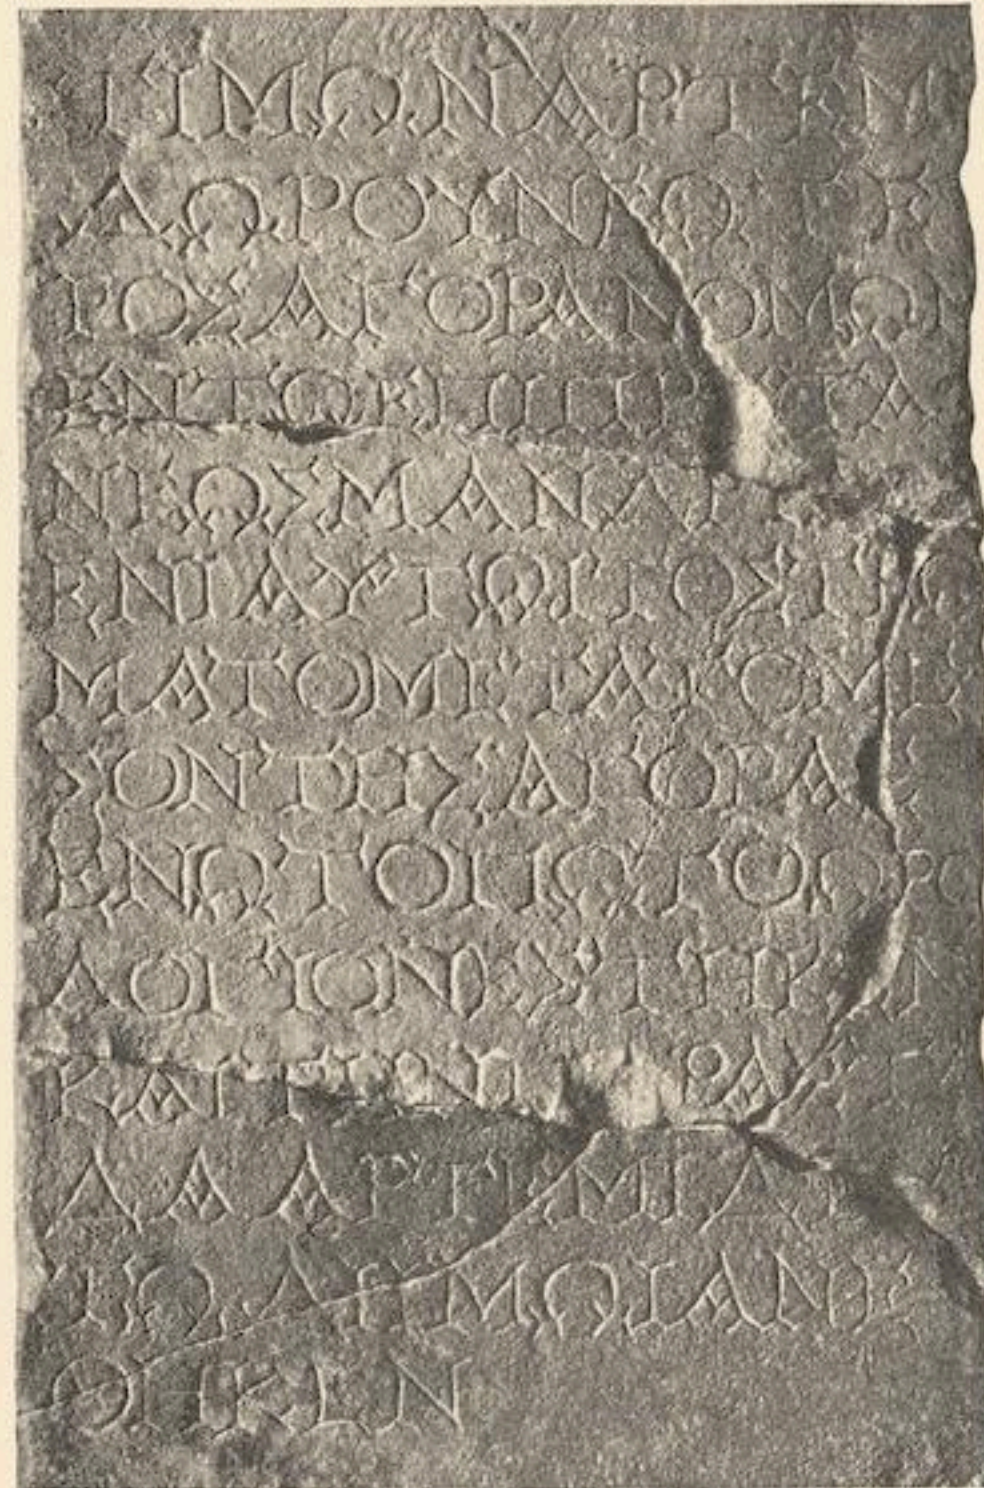 ΤΙΜΩΝ ΑΡΤΕΜ
ΔΩΡΟΥ ΝΕΩΤΕ
ΡΟΣ ΑΓΟΡΑΝΟΜΩΝ
ΕΝ ΤΩ ΕΠΙ ΠΡΥΤΑ
ΝΕΩΣ
ΕΝΙΑΥΤΩ ΤΟ ΣΤΡΩ
ΜΑ ΤΟ ΜΕΤΑ ΤΟ ΜΕ
ΣΟΝ ΤΗΣ ΑΓΟΡΑΣ
ΕΝ Ω ΤΟΠΩ ΤΟ ΩΡΟ
ΛΟΓΙΟΝ ΕΣΤΗΚΕΝ
ΚΑΙ ΤΗΝ ΠΑΡΑΣΤΑ
ΔΑ ΑΡΤΕΜΙΔΙ
ΤΩ ΔΗΜΩΙ ΑΝΕ
ΘΗΚΕΝ